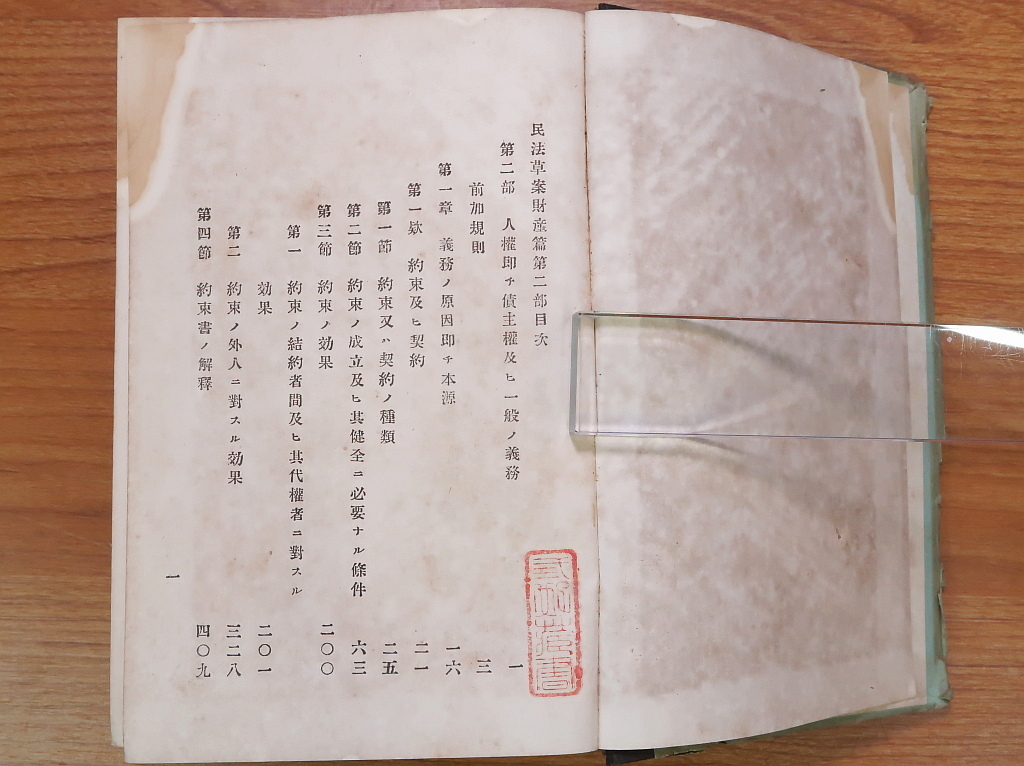 民法草案財產篇第二部目次
第二部 人權即チ債主權及ヒ一般ノ義務 一
前加規則 三
第一章 義務ノ原因即チ本源 一六
第一欵 約束及ヒ契約 二一
第一節 約束又ハ契約ノ種類 二五
第二節 約束ノ成立及ヒ其健全ニ必要ナル條件 六三
第三節 約束ノ効果 二〇〇
第一 約束ノ結約者間及ヒ其代權者ニ對スル
効果 二〇一
第二 約束ノ外人ニ對スル効果 三二八
第四節 約束書ノ解釋 四〇九
一